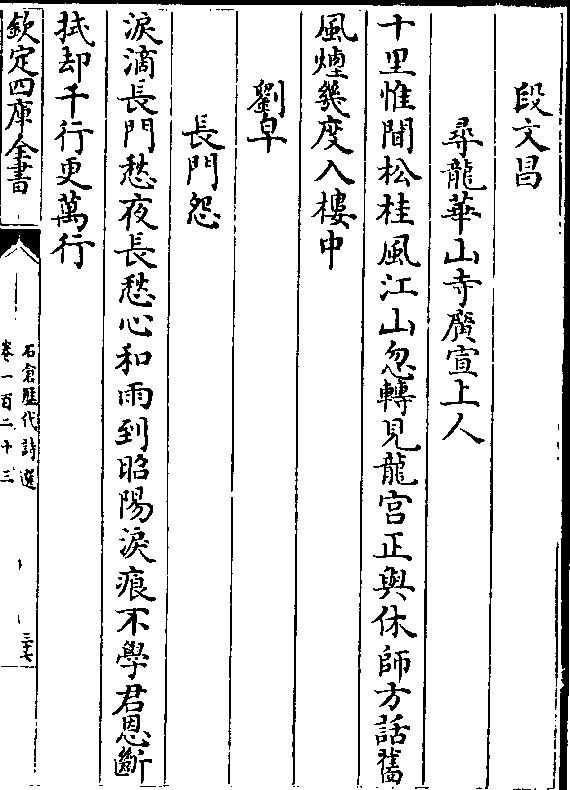 段文昌
尋龍華山寺廣宣上人
十里惟聞松桂風江山忽轉見龍宮正與休師方話舊
風煙幾度入樓中
劉皁
長門怨
淚滴長門愁夜長愁心和雨到昭陽淚痕不學君恩斷
拭却千行更萬行
欽定四庫全書
石倉歷代詩選
卷一百二十三
三十七